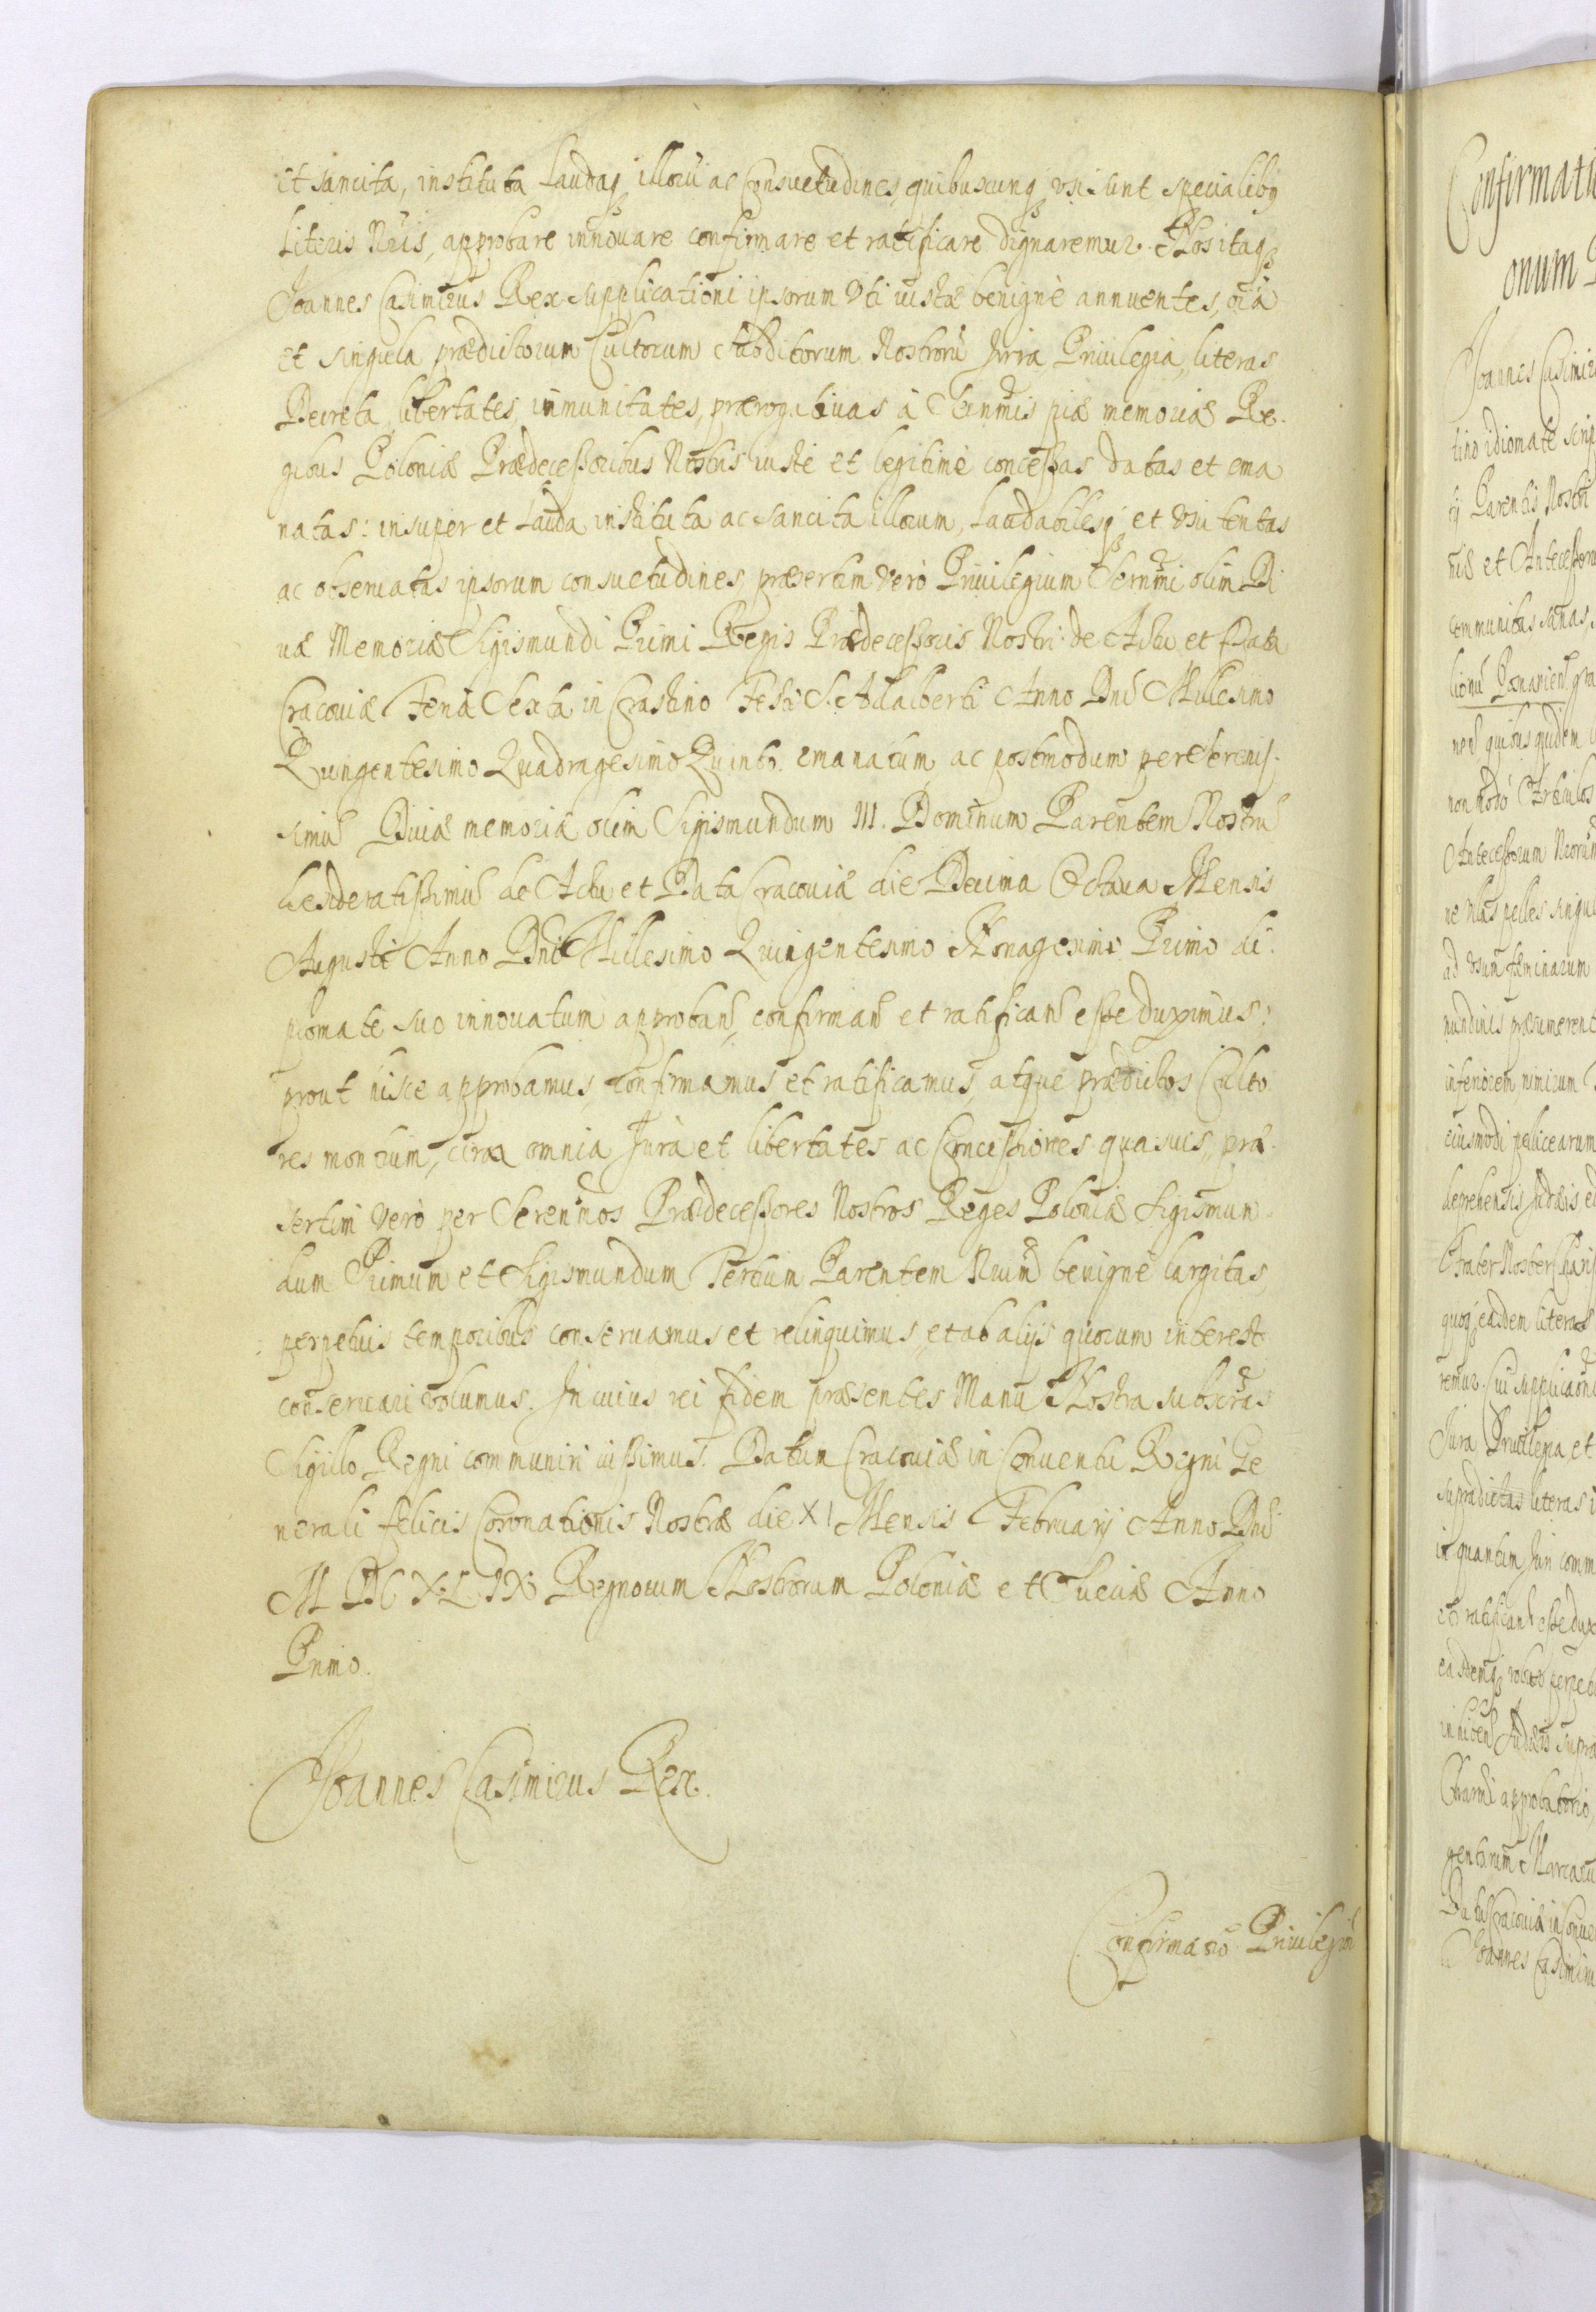 et sancita, instituta Laudaq₃ illorũ ac Consuetudines, quibuscunq₃ usi sunt specialibꝰ
Literis Nr̃is, approbare innouare confirmare et ratificare dignaremur. Nos itaq₃
Joannes Casimirus Rex supplicationi ipsorum Uti iustæ benignè annuentes, oĩa
et singula prædictorum Cultorum Subditorum Nostrorũ Jura Priuilegia, literas
Decreta, libertates, immunitates, prærogatiuas à Serm̃is piæ memoriæ Re-
gibus Poloniæ Prædecessoribus Nostris iustè et legitimè concessas datas et ema
natas: insuper et Lauda instituta ac sancita illorum, Laudabilesq₃ et Usu tentas
ac obseruatas ipsorum consuetudines, præsertim Verò Priuilegium Sernm̃i olim Di
uæ Memoriæ Sigismundi Primi Regis Prædecessoris Nostri de Actu et Data
Cracouiæ Feria Sexta in Crastino Festi S. Adalberti Anno Dnĩ Millesimo
Quingentesimo Quadragesimo Quinto emanatum, ac postmodum per Serenis-
simũ Diuæ memoriæ olim Sigismundum III. Dominum Parentem Nostrũ
desideratissimũ de Actu et Data Cracouiæ die Decima Octaua Mensis
Augusti Anno Dnĩ Millesimo Quingentesimo Nonagesimo Primo di-
plomate suo innouatum approbañ, confirmañ et ratificañ esse duximus:
prout hisce approbamus, confirmamus et ratificamus, atque prædictos Culto
res montium, circa omnia Jura et libertates ac Concessiones quasuis, præ-
sertim verò per Serenm̃os Prædecessores Nostros Reges Poloniæ Sigismun-
dum Primum et Sigismundum Tertium Parentem Nr̃um benignè largitas,
perpetuis temporibus conseruamus et relinquimus, et ab alijs quorum interest
conseruari volumus. In cuius rei fidem præsentes Manu Nostra subscr̃as
Sigillo Regni communiri iussimus. Datum Cracouiæ in Conuentu Regni Ge
nerali felicis Coronationis Nostræ die XI Mensis Februarij Anno Dnĩ
M DC XLIX Regnorum Nostrorum Poloniæ et Sueciæ Anno
Primo.
Joannes Casimirus Rex.
Confirmatio Priuilegior̃
Confirmatio
onum
Joannes Casimir
tino idiomate scrip
Parentis Nostri
et Antecessoru
communitas
Posnanieñ gra
quibus quidem
non modo
Antecessorum Nr̃orum
pelles singul
ad Usum fæminarum
nundinis præsumerent
inferiorem nimirum
eiusmodi pellicearum
deprehensis Judæis
Frater Noster Charis
quoq₃ easdem literas
remur. Cui supplicationi
Jura Priuilegia, et
supradictas literas
in quantum Juri comm
et ratificañ esse dux
easdemq₃ robur perpet
Judæis supra
approbatorio
gentarum Marcarum
Datũ Cracouiæ in Conue
Joannes Casimirus